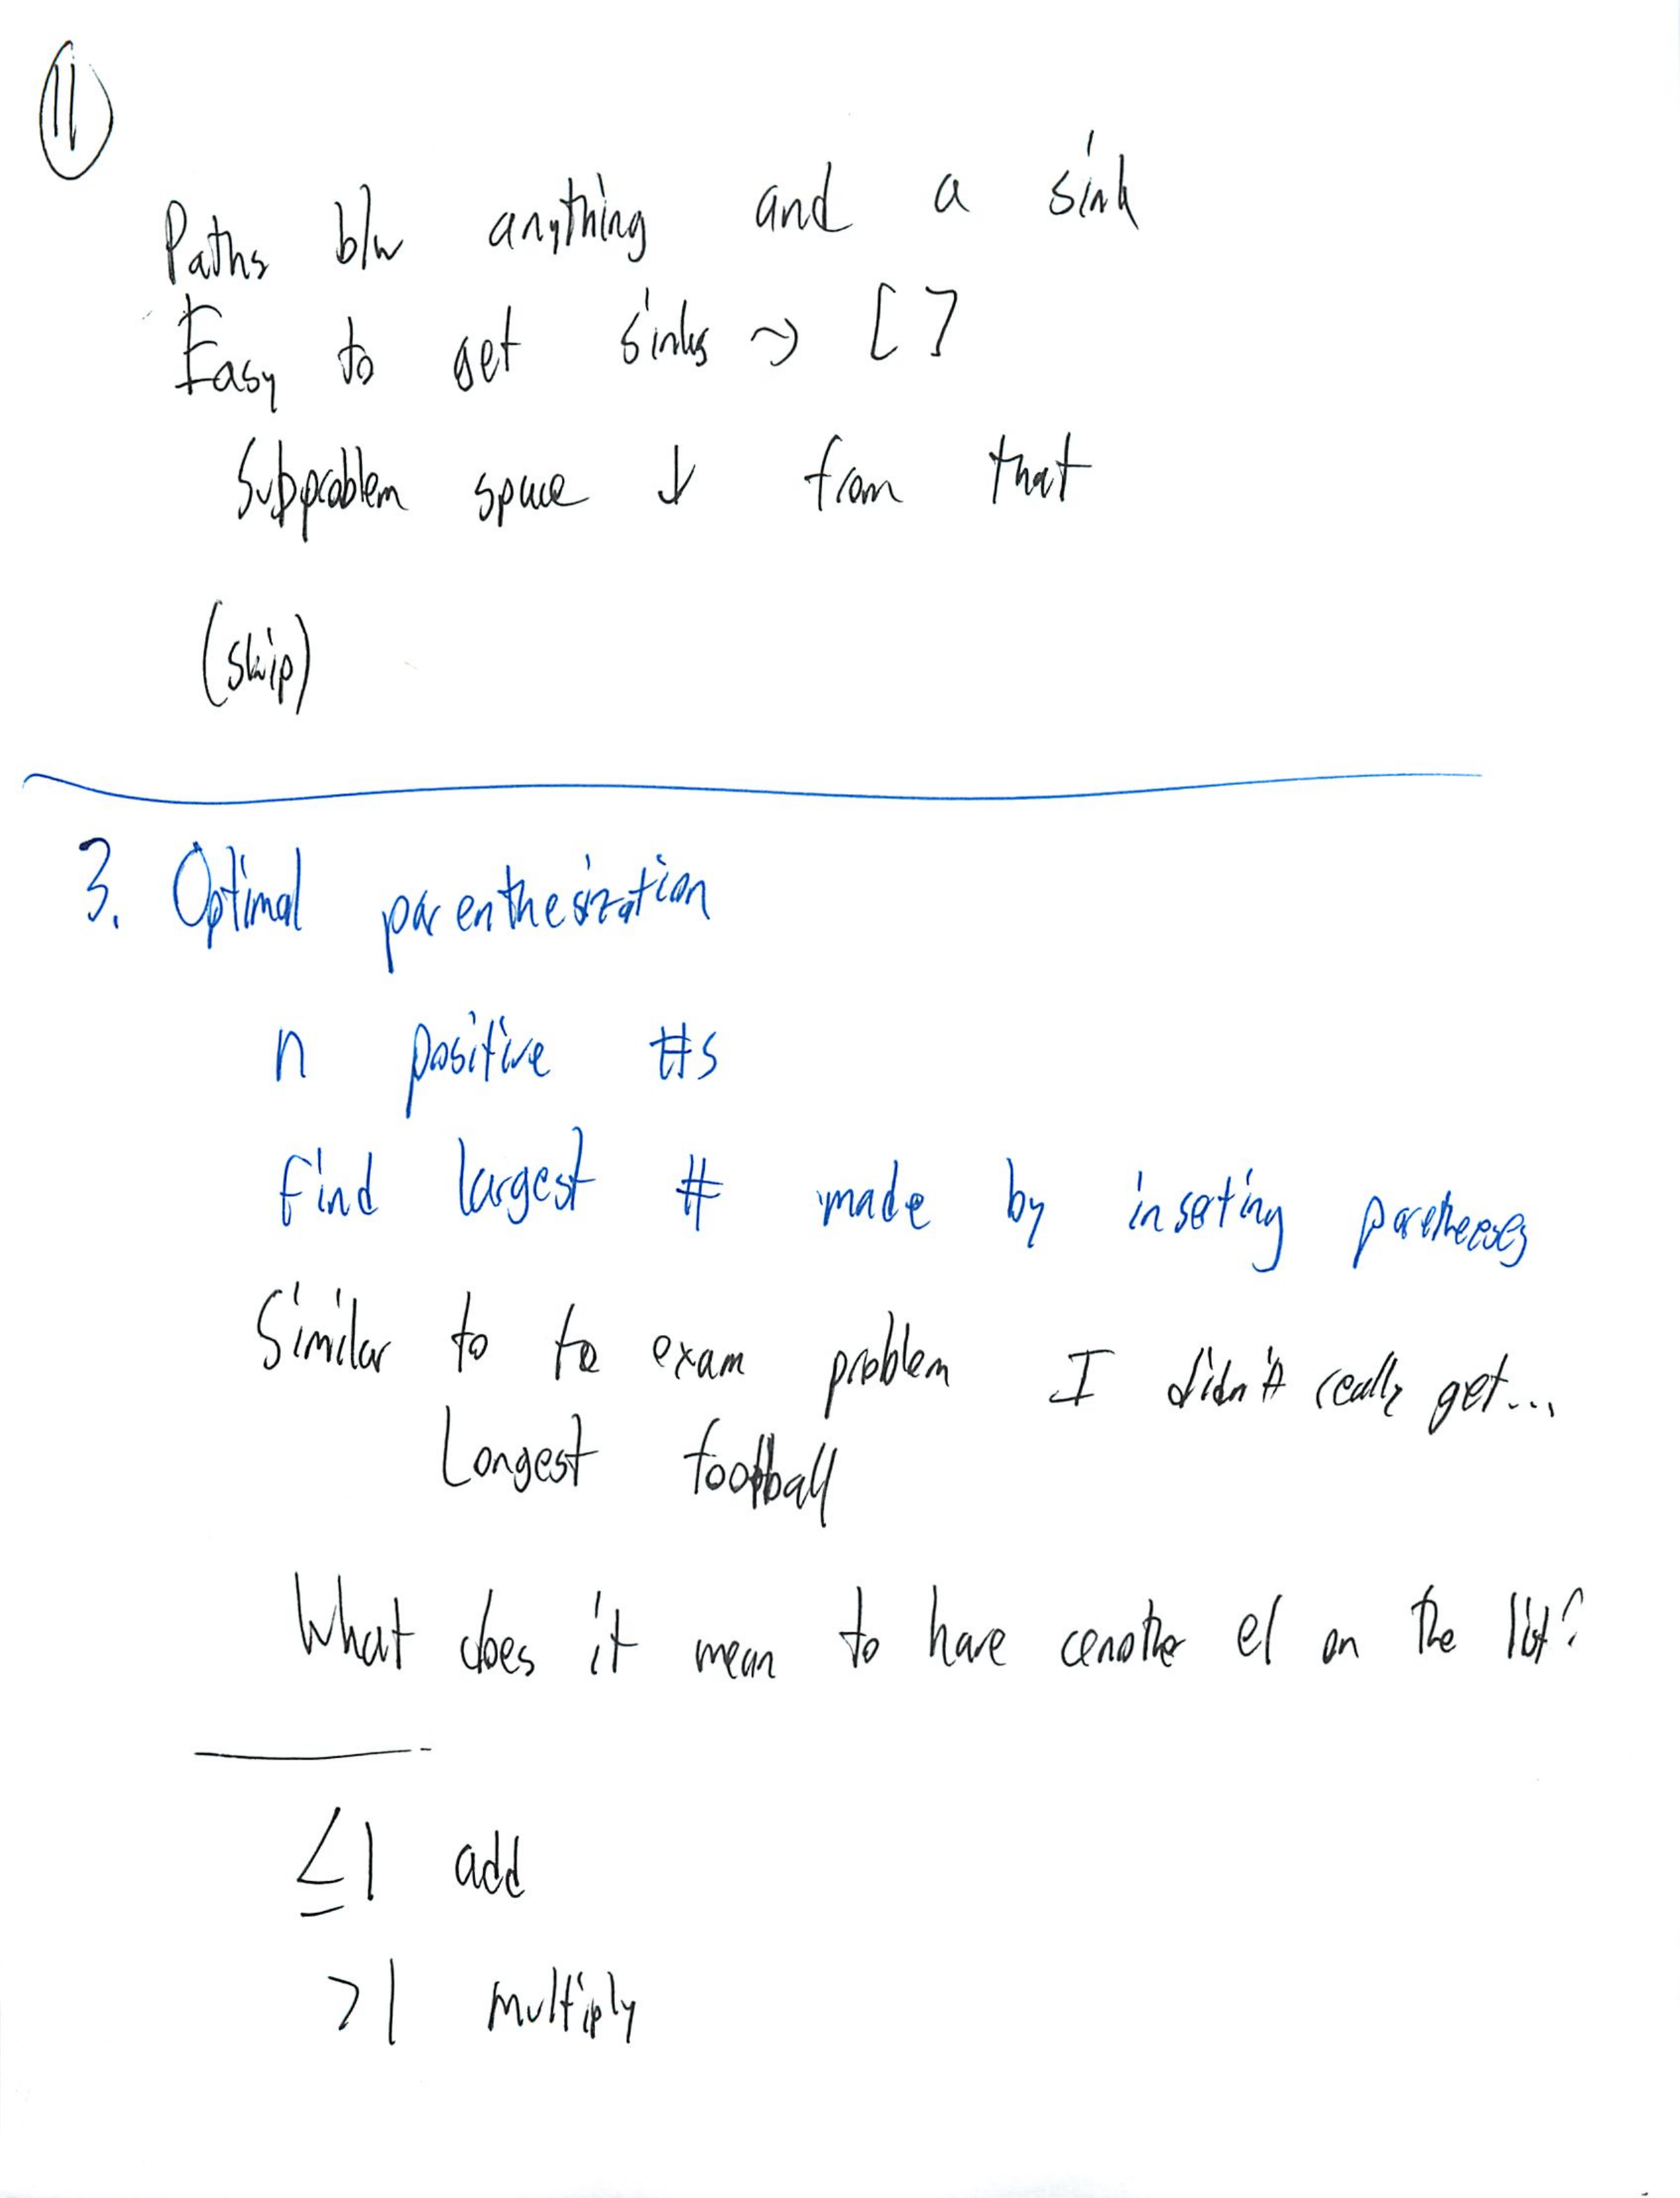 11
Paths b/w anything and a sink
Easy to get sinks → [ ]
Subproblem space ↓ from that
(skip)
3. Optimal parenthesization
n positive #s
Find largest # made by inserting parentheses
Similar to to exam problem I didn't really get...
Longest football
What does it mean to have another el on the list?
≤1 add
>1 multiply